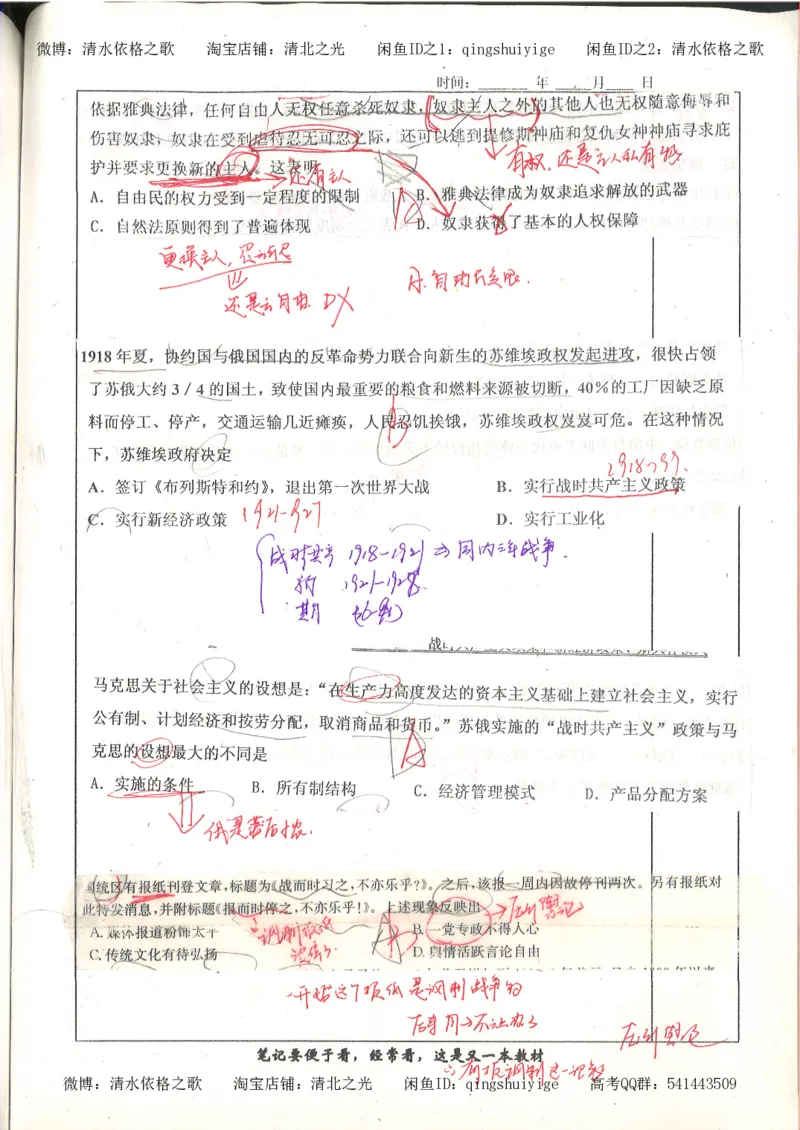 微博：清水依格之歌 淘宝店铺：清北之光 闲鱼ID之1：qingshuiyige 闲鱼ID之2：清水依格之歌
时间：______ 年 ___月___ 日
依据雅典法律，任何自由人无权任意杀死奴隶，奴隶主人之外的其他人也无权随意侮辱和
伤害奴隶，奴隶在受到虐待忍无可忍之际，还可以逃到提修斯神庙和复仇女神神庙寻求庇
护并要求更换新的主人。这表明
有权，还是主人私有的
还有主人
A．自由民的权力受到一定程度的限制 B．雅典法律成为奴隶追求解放的武器
C．自然法原则得到了普遍体现 D．奴隶获得了基本的人权保障
更换主人，
还是无自由 D×
1918 年夏，协约国与俄国国内的反革命势力联合向新生的苏维埃政权发起进攻，很快占领
了苏俄大约 3 / 4 的国土，致使国内最重要的粮食和燃料来源被切断，40％的工厂因缺乏原
料而停工、停产，交通运输几近瘫痪，人民忍饥挨饿，苏维埃政权岌岌可危。在这种情况
下，苏维埃政府决定
B
A．签订《布列斯特和约》，退出第一次世界大战 B．实行战时共产主义政策
C．实行新经济政策 1921-1927 D．实行工业化
战时共产 1918-1921 ⇒ 国内三年战争．
新 1921-1928
斯
马克思关于社会主义的设想是：“在生产力高度发达的资本主义基础上建立社会主义，实行
公有制、计划经济和按劳分配，取消商品和货币。”苏俄实施的“战时共产主义”政策与马
克思的设想最大的不同是
A
A．实施的条件 B．所有制结构 C．经济管理模式 D．产品分配方案
俄是落后农．
国统区有报纸刊登文章，标题为《战而时习之，不亦乐乎？》。之后，该报一周内因故停刊两次。另有报纸对
此特发消息，并附标题《报而时停之，不亦乐乎！》。上述现象反映出
A. 媒体报道粉饰太平 B. 一党专政不得人心
C. 传统文化有待弘扬 D. 舆情活跃言论自由
一开始这个报纸是讽刺战争的
笔记要便于看，经常看，这是又一本教材
微博：清水依格之歌 淘宝店铺：清北之光 闲鱼ID：qingshuiyige 高考QQ群：541443509